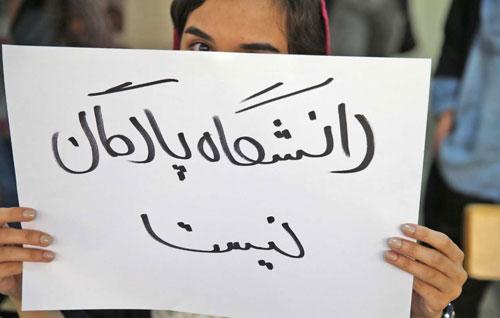 دانشگاه پادگان
نیست